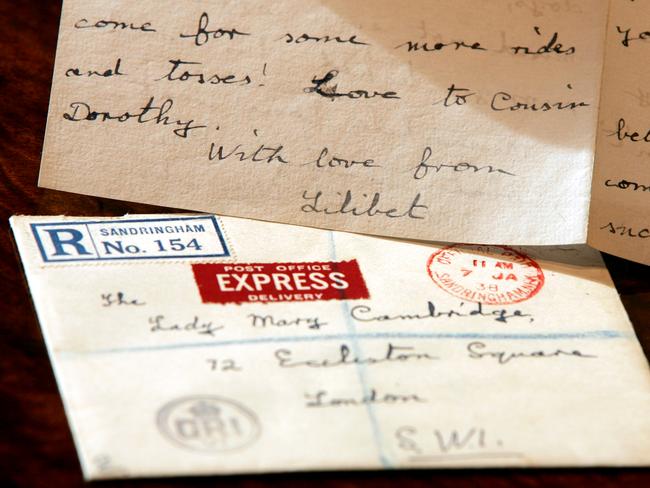 come for some more rides
and tosses! Love to Cousin
Dorothy.
With love from
Lilibet
R SANDRINGHAM
No. 154
POST OFFICE
EXPRESS
DELIVERY
11 AM
7 JA
38
SANDRINGHAM
The
Lady Mary Cambridge,
72 Eccleston Square
London
S.W.1.
GRI